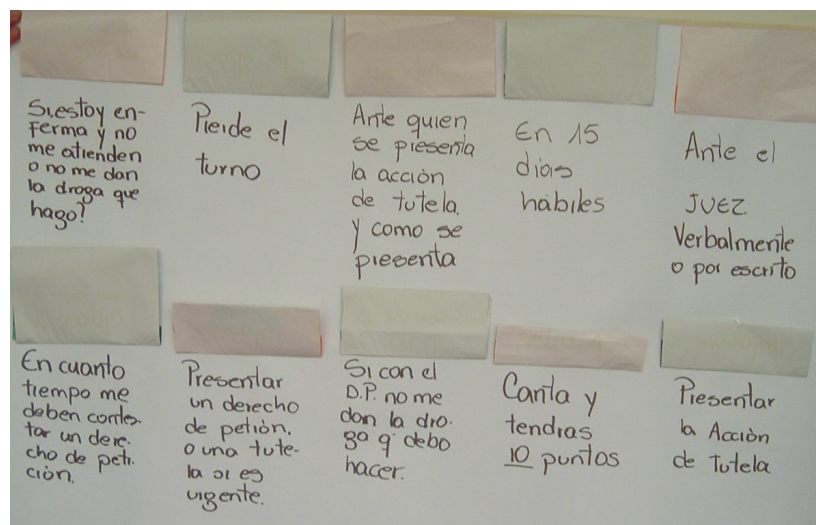 Si estoy en-
ferma y no
me atienden
o no me dan
la droga que
hago?
Pierde el
turno
Ante quien
se presenta
la acción
de tutela.
y como se
presenta
En 15
dias
hábiles
Ante el
JUEZ.
Verbalmente
o por escrito
En cuanto
tiempo me
deben contes-
tar un dere-
cho de peti-
ción.
Presentar
un derecho
de petión.
o una tute-
la si es
urgente.
Si con el
D.P. no me
dan la dro-
ga q' debo
hacer.
Canta y
tendras
10 puntos
Presentar
la Acción
de Tutela